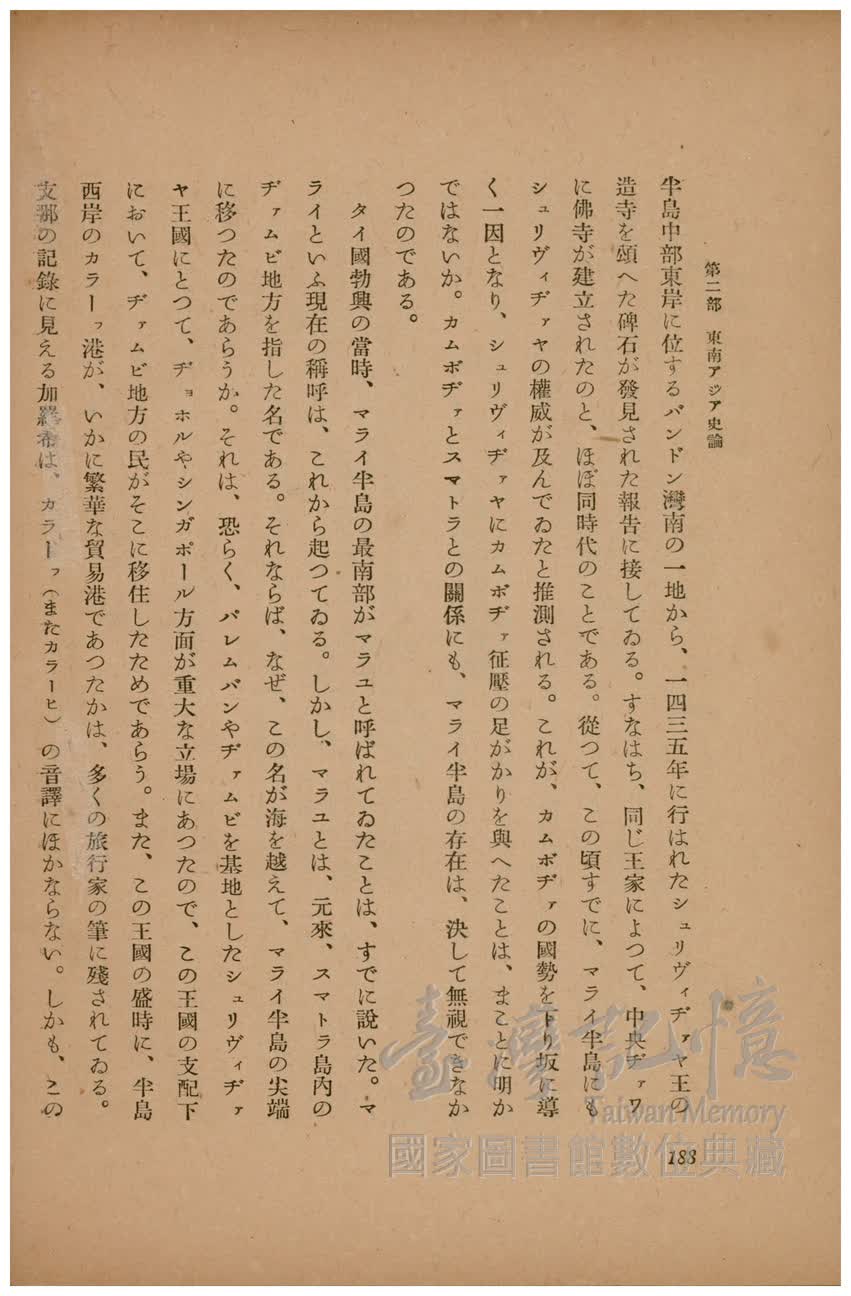 第二部　東南アジア史論
半島中部東岸に位するバンドン灣南の一地から、一四三五年に行はれたシュリヴィヂァヤ王の
造寺を頌へた碑石が發見された報告に接してゐる。すなはち、同じ王家によつて、中央ヂァワ
に佛寺が建立されたのと、ほぼ同時代のことである。從つて、この頃すでに、マライ半島にも
シュリヴィヂァヤの權威が及んでゐたと推測される。これが、カムボヂァの國勢を下り坂に導
く一因となり、シュリヴィヂァヤにカムボヂァ征壓の足がかりを與へたことは、まことに明か
ではないか。カムボヂァとスマトラとの關係にも、マライ半島の存在は、決して無視できなか
つたのである。
タイ國勃興の當時、マライ半島の最南部がマラユと呼ばれてゐたことは、すでに說いた。マ
ライといふ現在の稱呼は、これから起つてゐる。しかし、マラユとは、元來、スマトラ島內の
ヂァムビ地方を指した名である。それならば、なぜ、この名が海を越えて、マライ半島の尖端
に移つたのであらうか。それは、恐らく、パレムバンやヂァムビを基地としたシュリヴィヂァ
ヤ王國にとつて、ヂョホルやシンガポール方面が重大な立場にあつたので、この王國の支配下
において、ヂァムビ地方の民がそこに移住したためであらう。また、この王國の盛時に、半島
西岸のカラーフ港が、いかに繁華な貿易港であつたかは、多くの旅行家の筆に殘されてゐる。
支那の記錄に見える加羅希は、カラーフ（またカラーヒ）の音譯にほかならない。しかも、この
188
臺灣記憶
Taiwan Memory
國家圖書館數位典藏